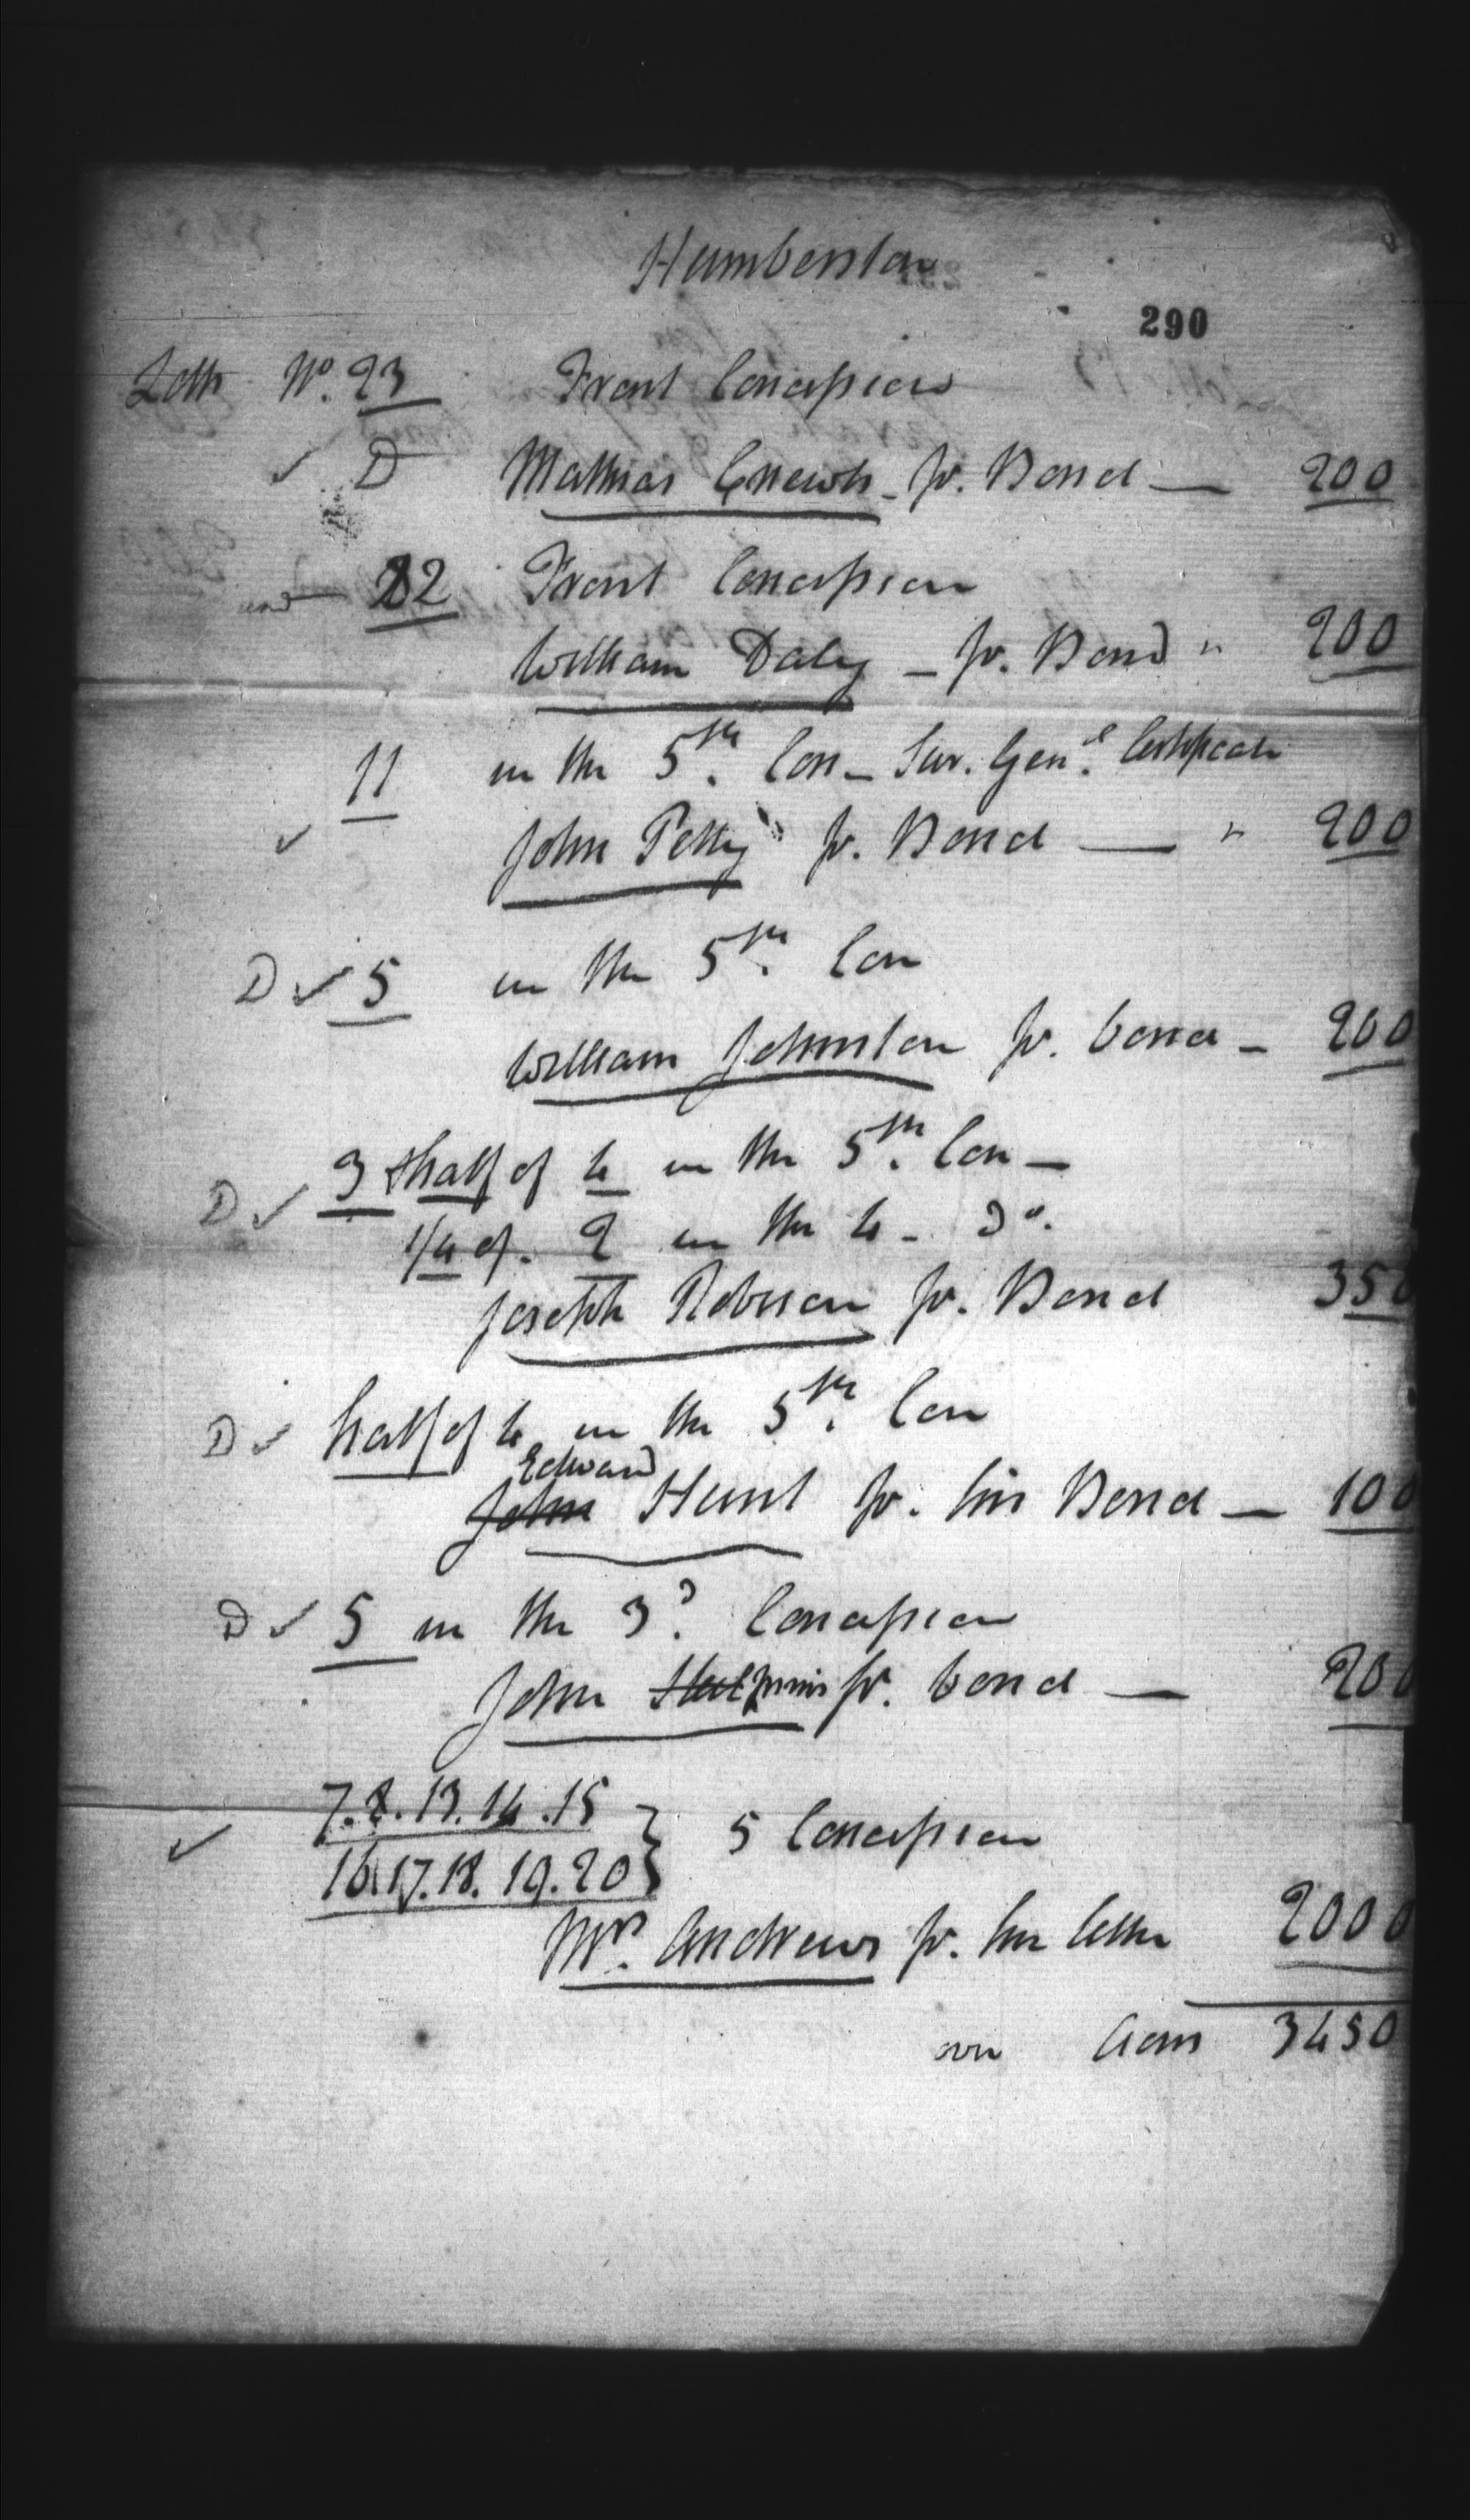 Humberston
290
Lotts No. 23 Front Concession
D Mathias Crewts - pr. Bond — 200
22 Front Concession
William Daly - pr. Bond " 200
11 in the 5th. Con - Sur. Genl. Certificate
John Petty pr. Bond — " 200
D ✓ 5 in the 5th. Con
William Johnston pr. bond - 200
3 & half of 4 in the 5th. Con -
D ✓ 1/4 of. 2 in the 4 - Do.
Joseph Robison pr. Bond 350
D ✓ half of 4 in the 5th. Con
Edward
John Hunt pr. his Bond — 100
D ✓ 5 in the 3d. Concession
John pr. bond — 200
7. 8. 13. 14. 15
✓ 16. 17. 18. 19. 20 } 5 Concession
Mrs. Andrews pr. her letter 2000
over Acres 3450